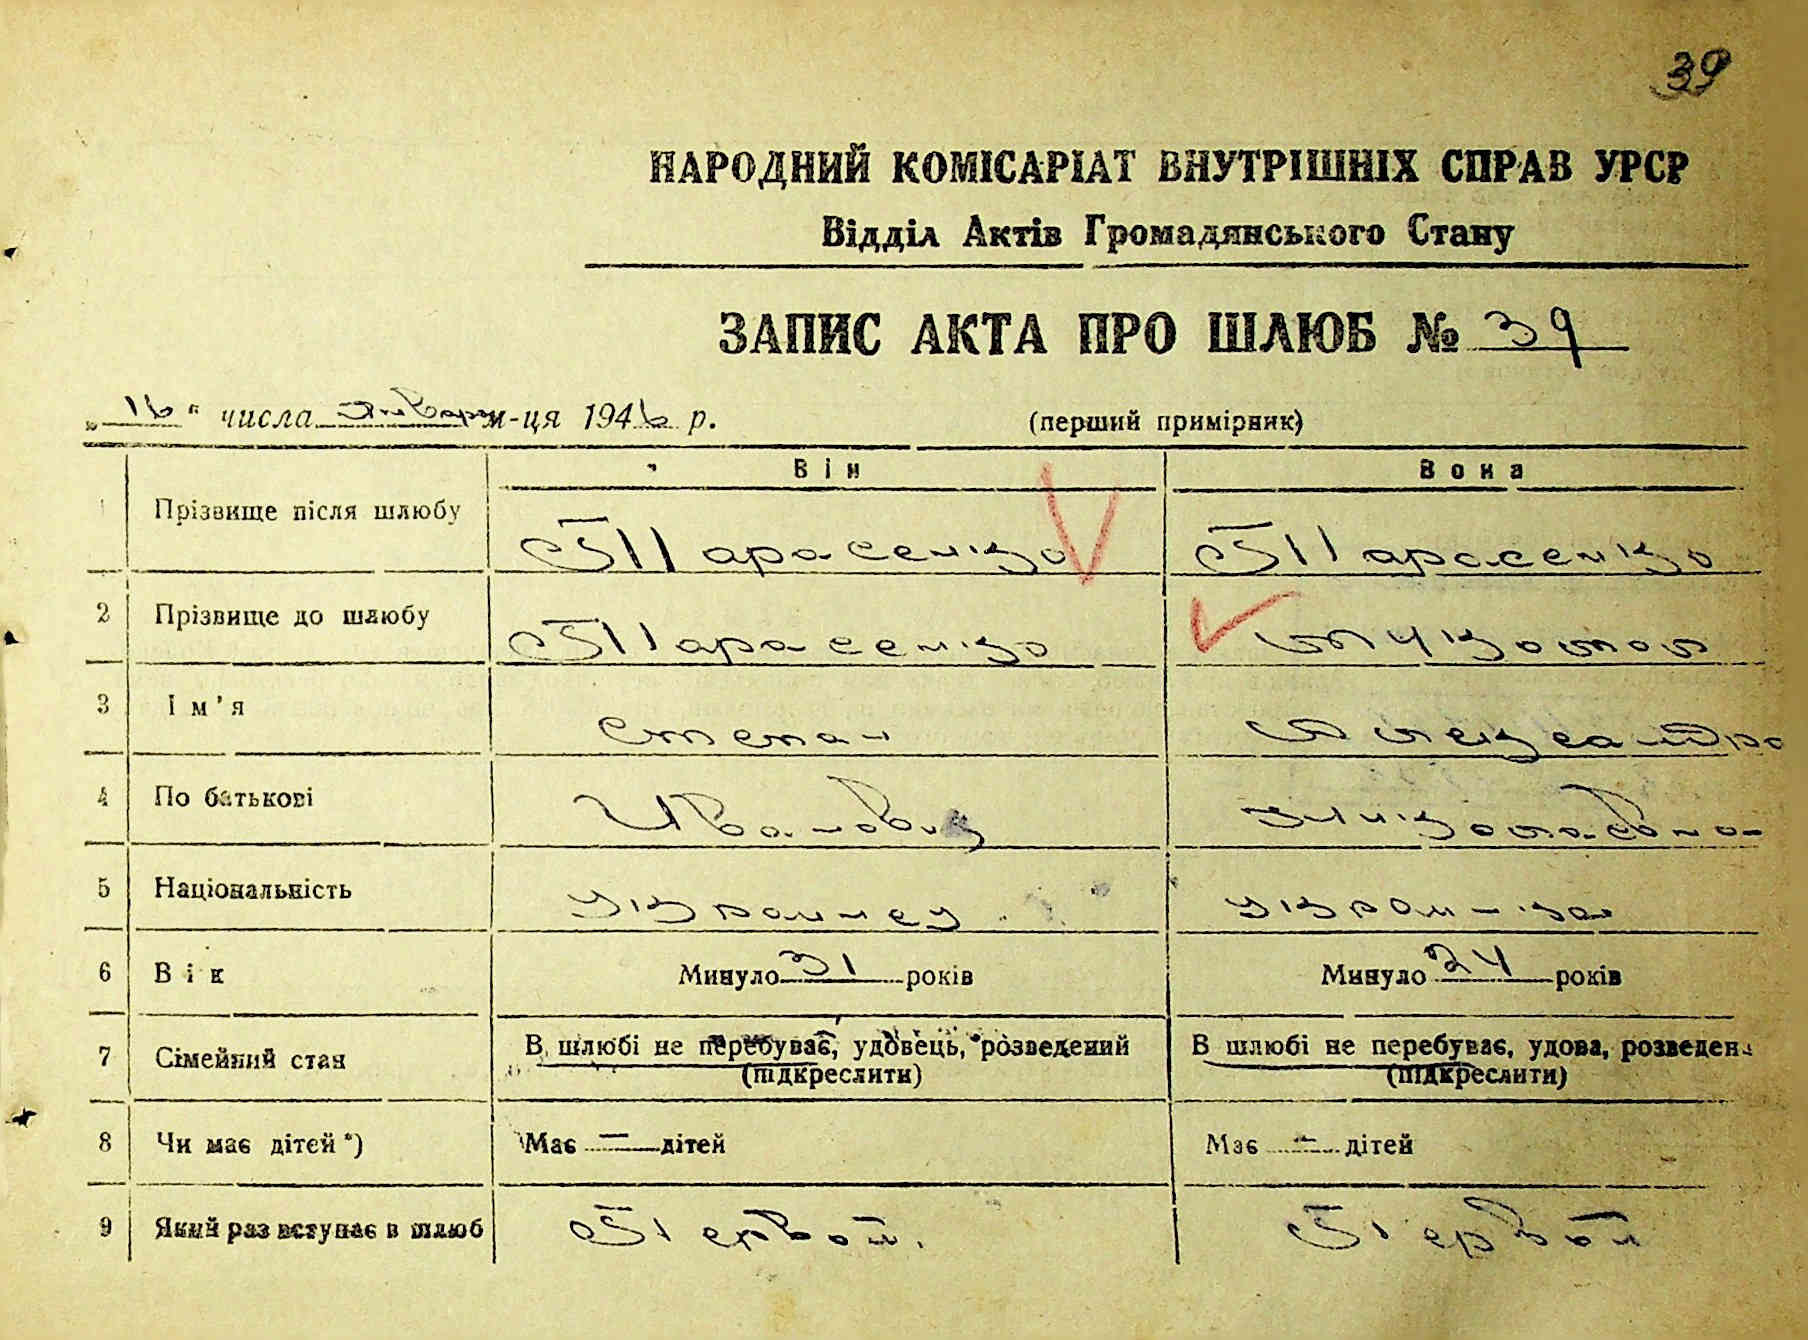 39
НАРОДНИЙ КОМІСАРІАТ ВНУТРІШНІХ СПРАВ УРСР
Відділ Актів Громадянського Стану
ЗАПИС АКТА ПРО ШЛЮБ № 39
„16“ числа января м-ця 1946 р. (перший примірник)
Він Вона
1 Прізвище після шлюбу Парасенко Парасенко
2 Прізвище до шлюбу Парасенко
3 Ім'я Степан Александра
4 По батькові Иванович Николаевна
5 Національність украинец украинка
6 Вік Минуло 31 років Минуло 24 років
7 Сімейний стан В шлюбі не перебуває, удовець, розведений В шлюбі не перебуває, удова, розведена
(підкреслити) (підкреслити)
8 Чи має дітей *) Має — дітей Має — дітей
9 Який раз вступає в шлюб Первой Первой